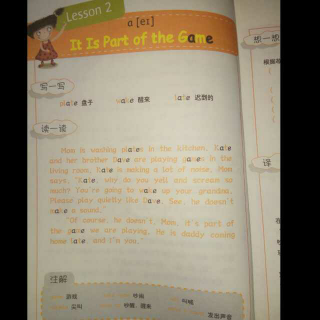 Lesson 2
a [eɪ]
It Is Part of the Game
写一写
plate 盘子 wake 醒来 late 迟到的
读一读
Mom is washing plates in the kitchen. Kate
and her brother Dave are playing games in the
living room. Kate is making a lot of noise. Mom
says, "Kate, why do you yell and scream so
much? You're going to wake up your grandma.
Please play quietly like Dave. See, he doesn't
make a sound."
"Of course, he doesn't, Mom, it's part of
the game we are playing. He is daddy coming
home late, and I'm you."
注解
游戏
吵闹
叫喊
尖叫
吵醒，醒来
发出声音
想一想
根据